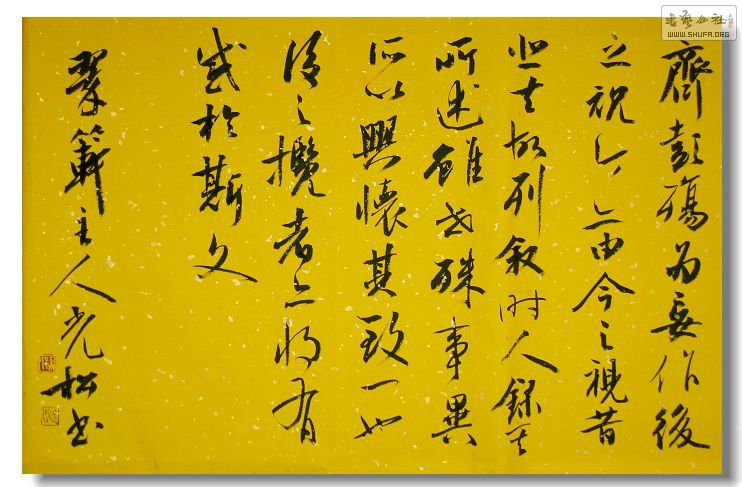 齊彭殤為妄作後
之視今亦由今之視昔
悲夫故列叙時人錄其
所述雖世殊事異
所以興懷其致一也
後之攬者亦將有
感於斯文
範主人光松書
书艺公社
WWW.SHUFA.ORG